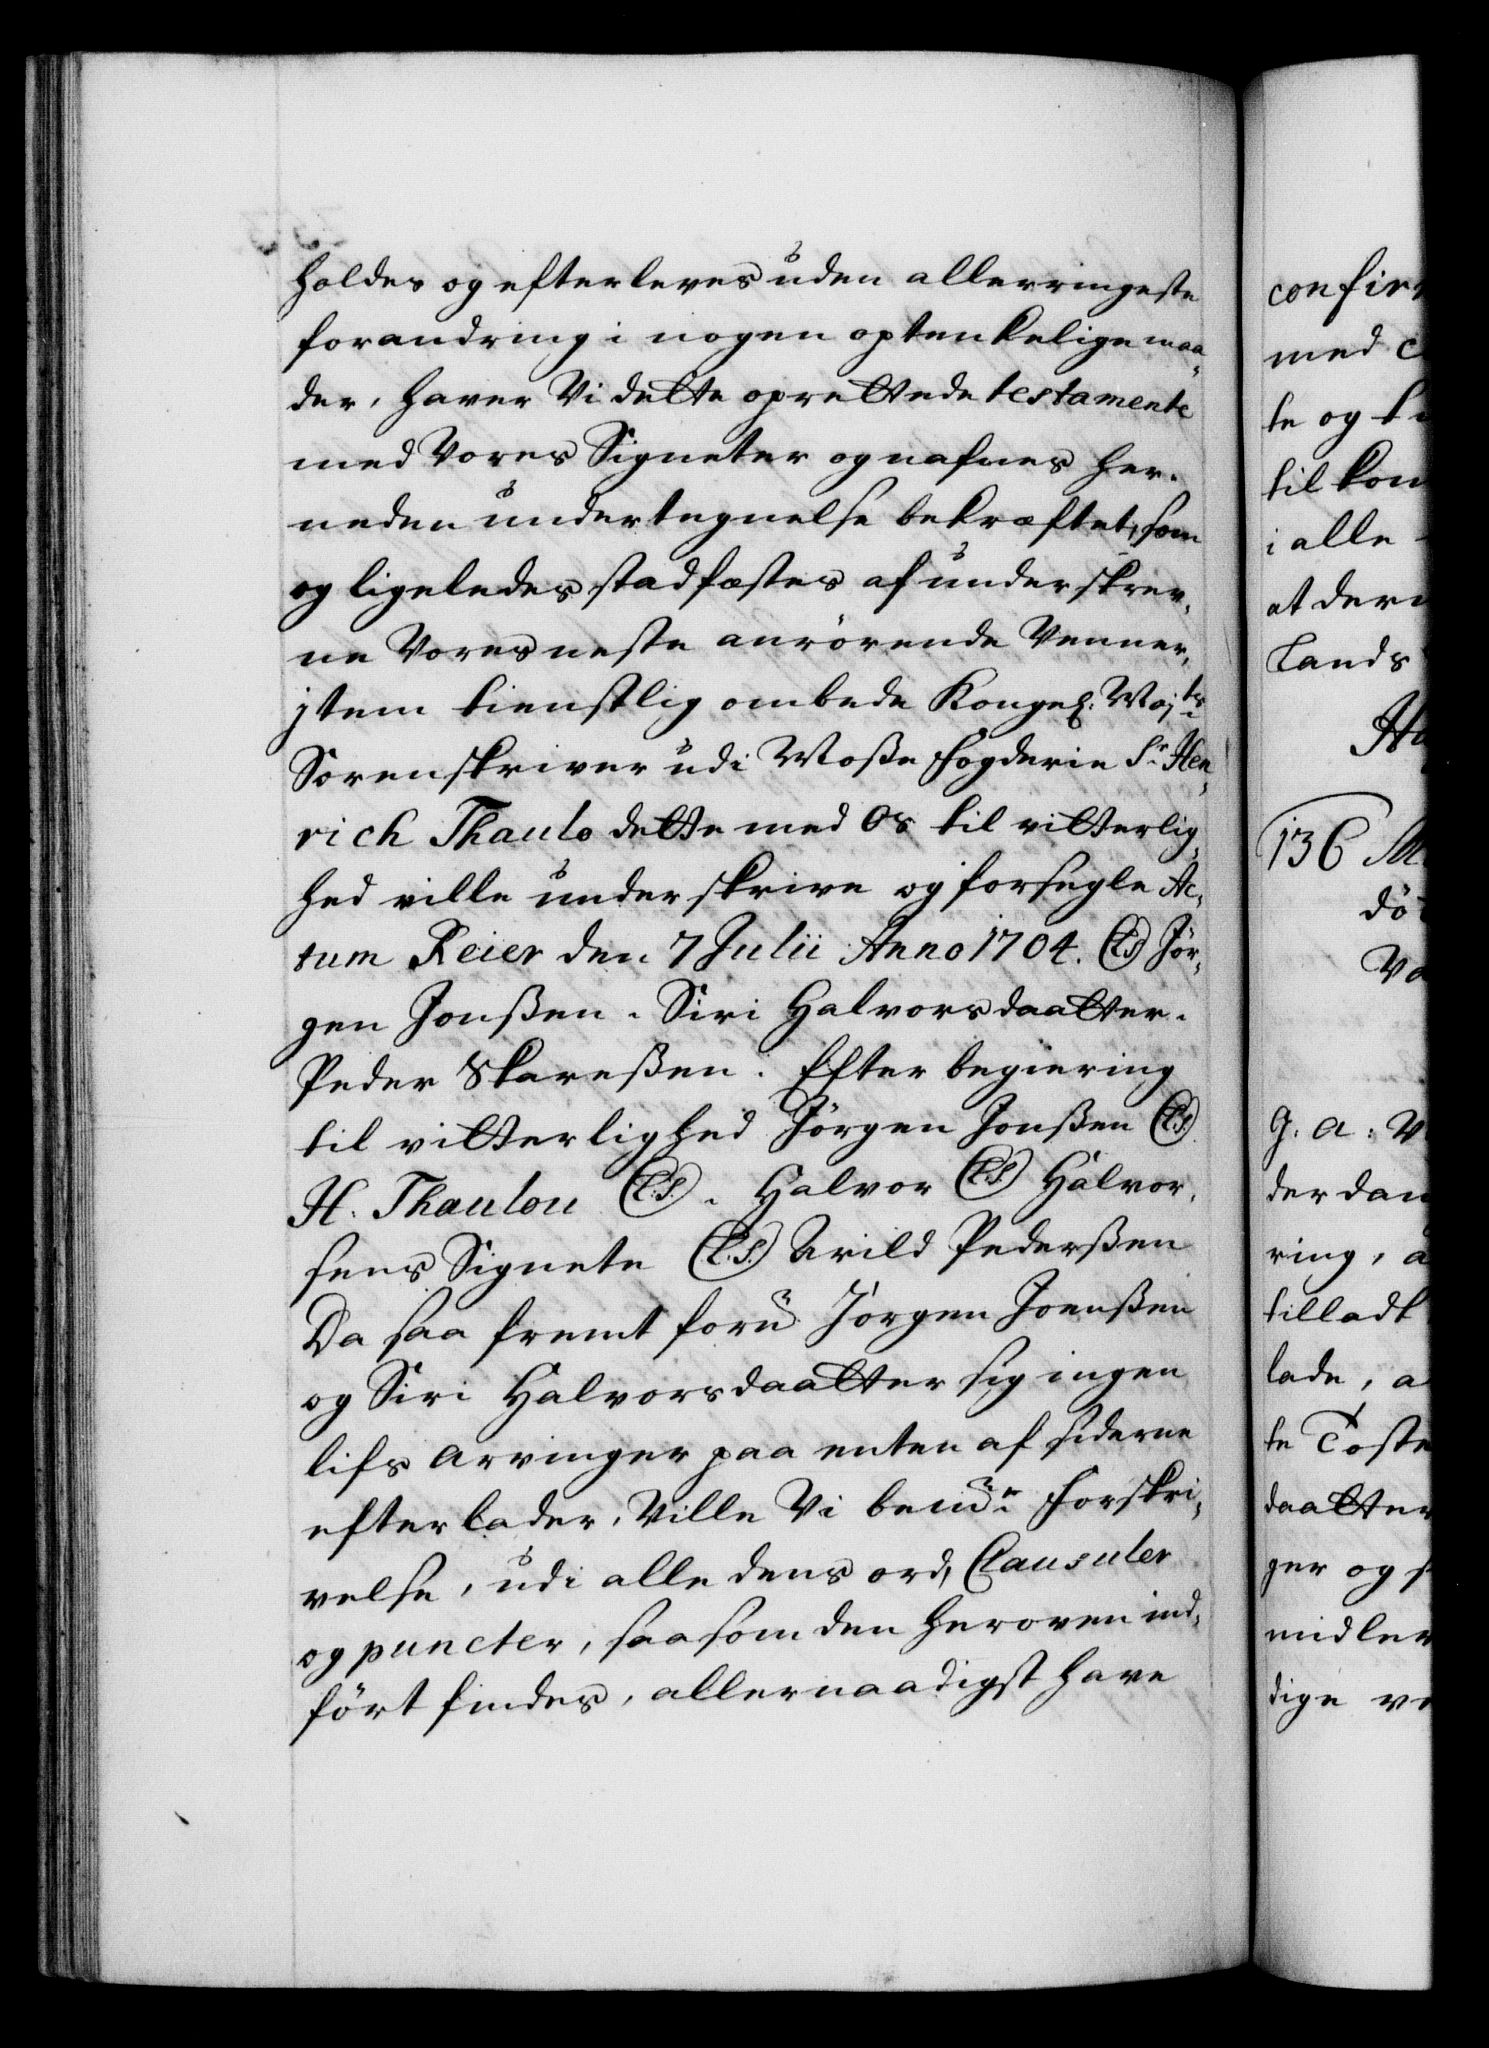 holdes og efterleves uden allerringeste
forandring i nogen optenkelige maa„
der, haver Vi dette oprettede testamente
med Vores Signeter og nafnes her„
neden undertegnelse bekræftet, som
og ligeledes stadfæstes af underskrev„
ne Vores neste anrörende Venner,
jtem tienstlig ombede Kongel: Maj:ts
Sorenskriver udi Moße fogderie Sr. Hen„
rich Thaulo dette med Os til vitterlig„
hed ville underskrive og forsegle Ac„
tum Reier den 7 Julii Anno 1704. (L.S.) Jör„
gen Jonßen. Siri Halvorsdaatter.
Peder Skareßen. Efter begiering
til vitterlighed Jörgen Jonßen (L.S.)
H. Thaulou (L.S.). Halvor (L.S.) Halvor„
sens Signete (L.S.) Arild Pederßen
Da saa fremt foru Jörgen Joenßen
og Siri Halvorsdaatter sig ingen
lifs arvinger paa enten af siderne
efterlader, Ville Vi bemte forskri„
velse, udi alle dens ord, Clausuler
og puncter, saasom den heroven ind„
fört findes, allernaadigst have
confir
med
te og
til kon
i alle
at der
Lands
136
dö
Va
G. A. V
der dan
ring, a
tilladt
lade, a
te Toste
daatter
ger og
midler
dige